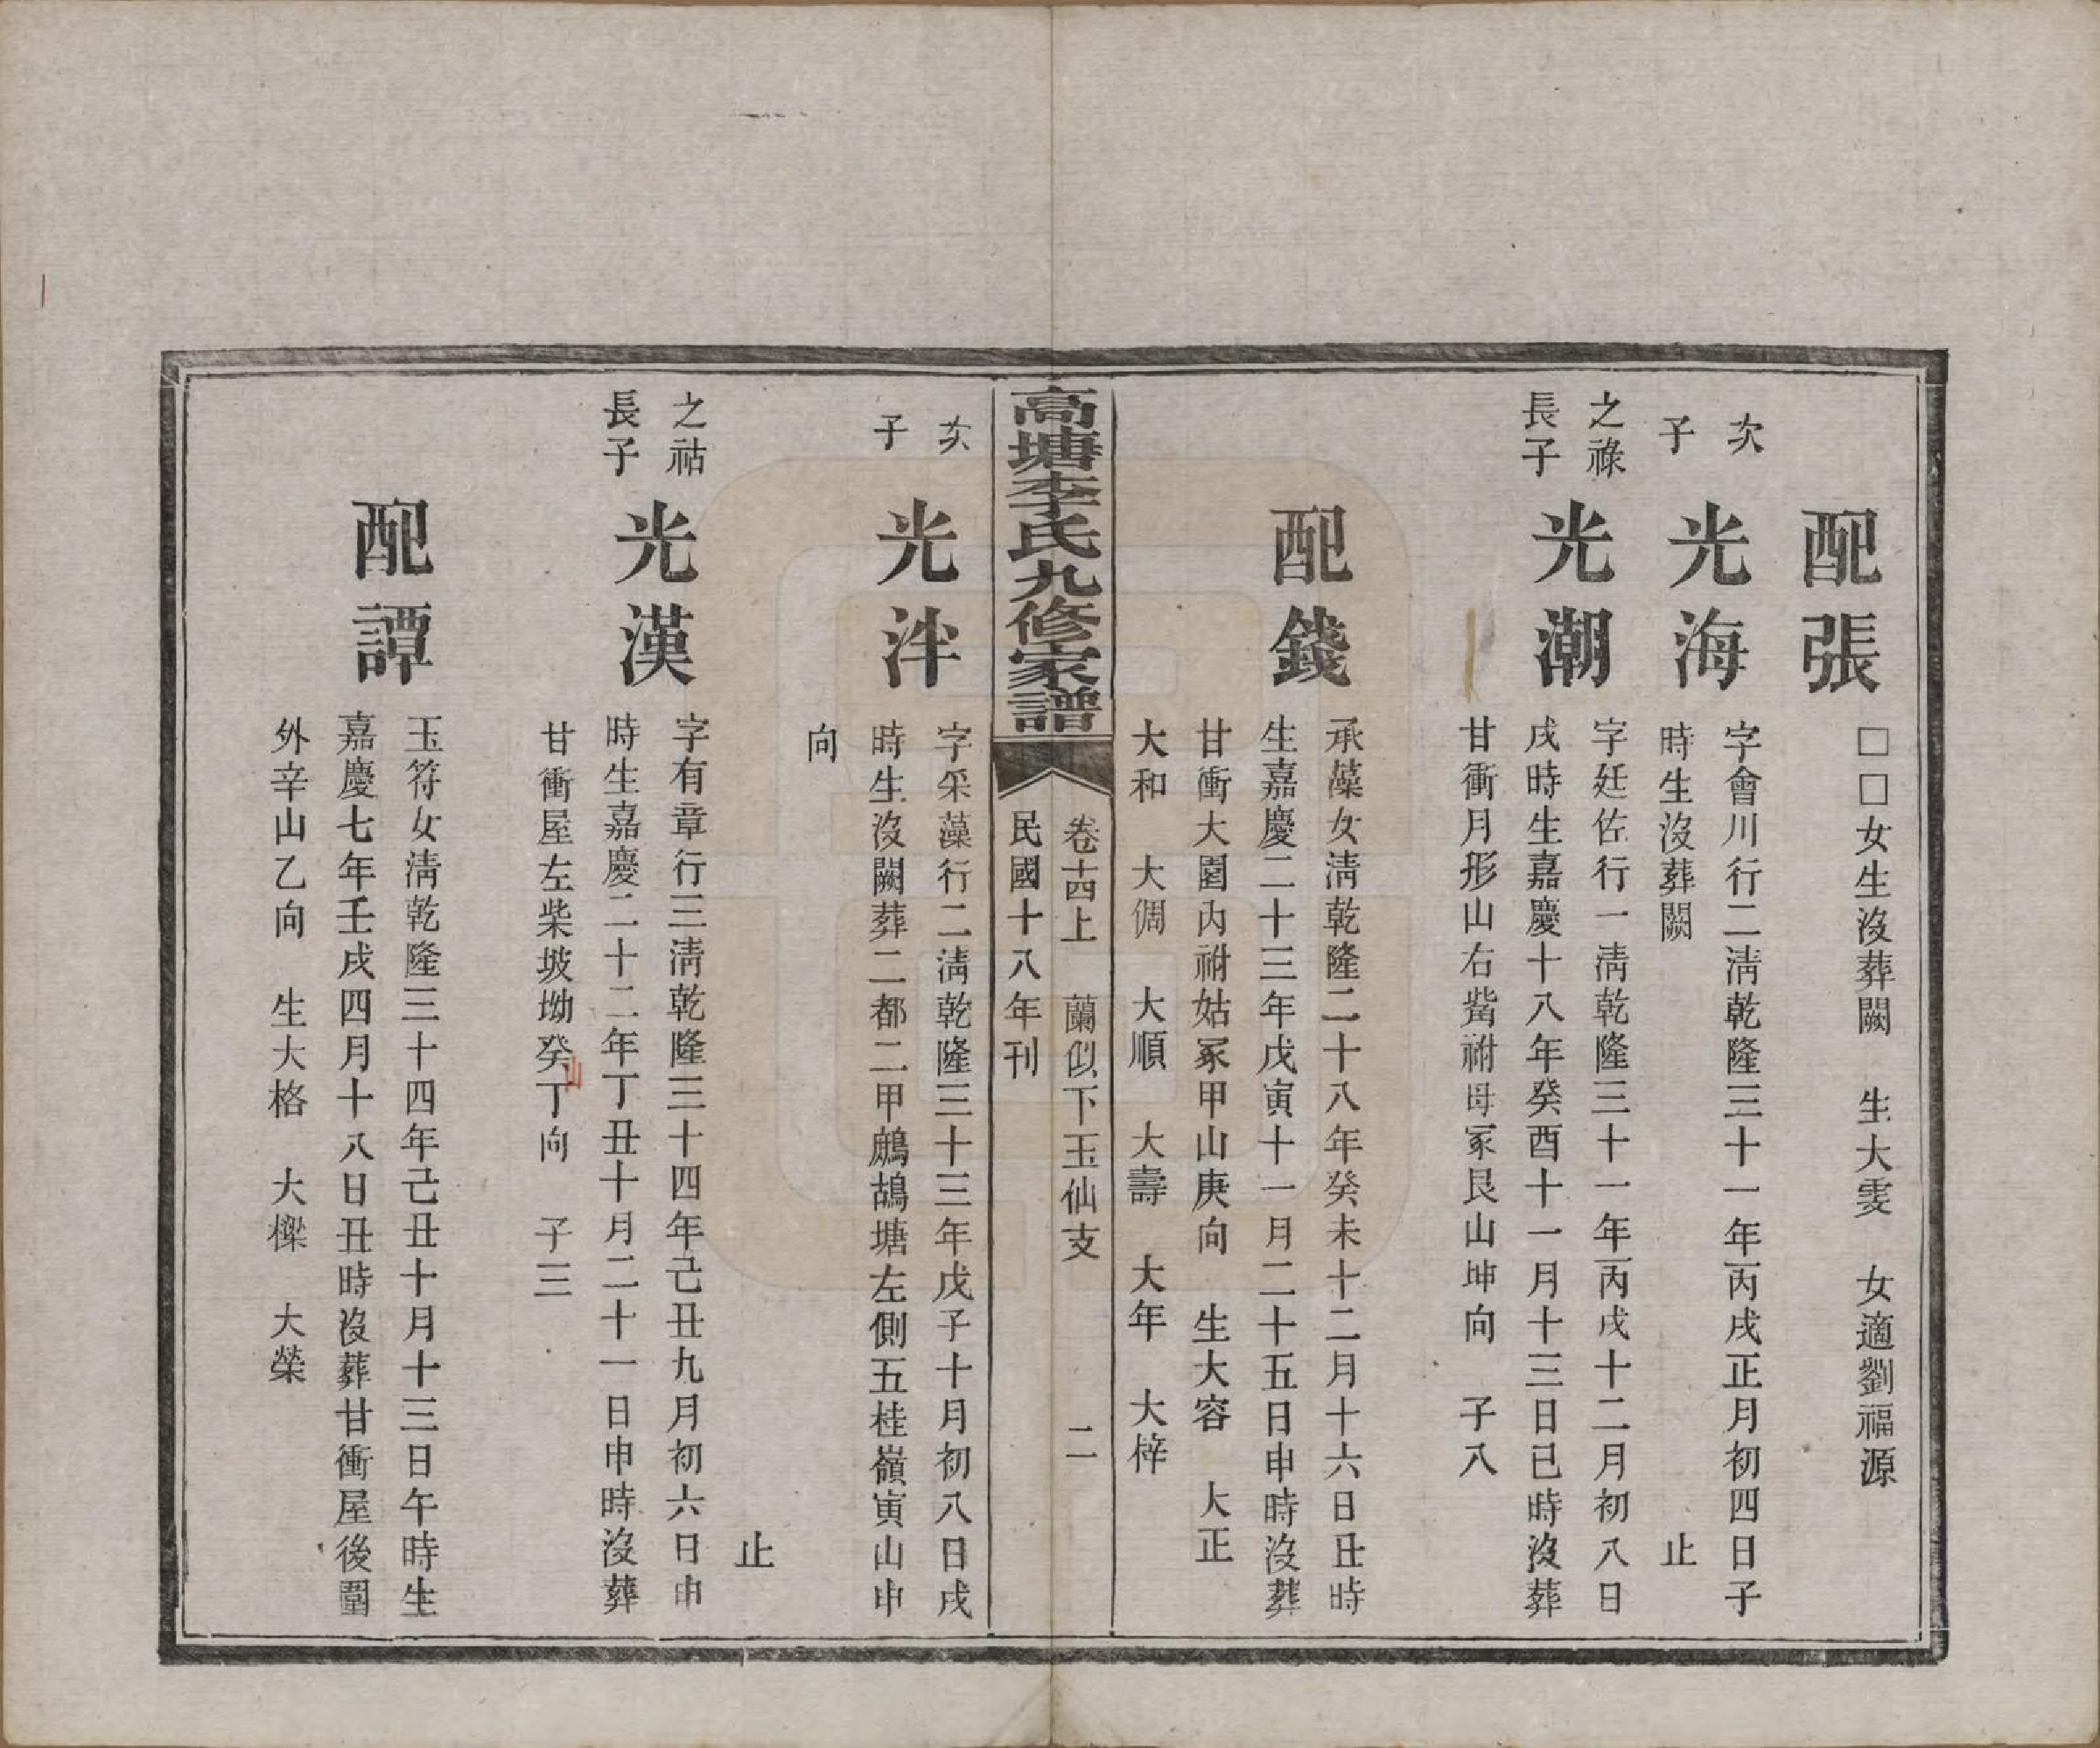 配張
□□女生沒葬闕　生大雯　女適劉福源
次子
光海
字會川行二淸乾隆三十一年丙戌正月初四日子
時生沒葬闕　止
之祿長子
光潮
字廷佐行一淸乾隆三十一年丙戌十二月初八日
戌時生嘉慶十八年癸酉十一月十三日巳時沒葬
甘衝月形山右嘴祔母冢艮山坤向　子八
配錢
承藻女淸乾隆二十八年癸未十二月十六日丑時
生嘉慶二十三年戊寅十一月二十五日申時沒葬
甘衝大園內祔姑冢甲山庚向　生大容　大正
大和　大倜　大順　大壽　大年　大梓
高塘李氏九修家譜
卷十四上　蘭似下玉仙支　二
民國十八年刊
次子
光泮
字采藻行二淸乾隆三十三年戊子十月初八日戌
時生沒闕葬二都二甲鷓鴣塘左側五桂嶺寅山申
向
止
之祜長子
光漢
字有章行三淸乾隆三十四年己丑九月初六日申
時生嘉慶二十二年丁丑十月二十一日申時沒葬
甘衝屋左柴坡坳癸山丁向　子三
配譚
玉符女淸乾隆三十四年己丑十月十三日午時生
嘉慶七年壬戌四月十八日丑時沒葬甘衝屋後圍
外辛山乙向　生大格　大樑　大榮